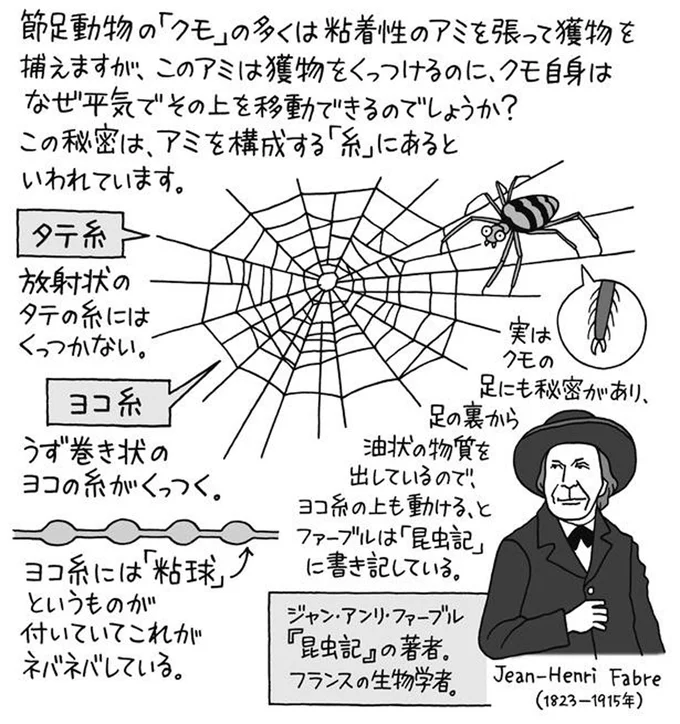 節足動物の「クモ」の多くは粘着性のアミを張って獲物を
捕えますが、このアミは獲物をくっつけるのに、クモ自身は
なぜ平気でその上を移動できるのでしょうか?
この秘密は、アミを構成する「糸」にあると
いわれています。
タテ糸
放射状の
タテの糸には
くっつかない。
ヨコ糸
うず巻き状の
ヨコの糸がくっつく。
ヨコ糸には「粘球」
というものが
付いていてこれが
ネバネバしている。
実は
クモの
足にも秘密があり、
足の裏から
油状の物質を
出しているので、
ヨコ糸の上も動ける、と
ファーブルは「昆虫記」
に書き記している。
ジャン・アンリ・ファーブル
『昆虫記』の著者。
フランスの生物学者。
Jean-Henri Fabre
(1823-1915年)